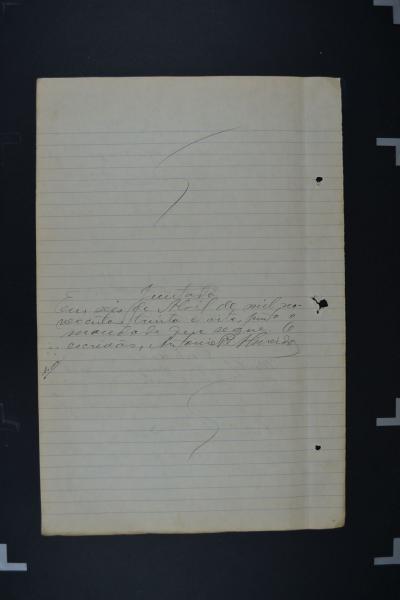 Juntada
Em seis de Abril de mil no-
vecentos trinta e oito, junto o
mandado que segue. O
escrivão, Antonio P. Almeida